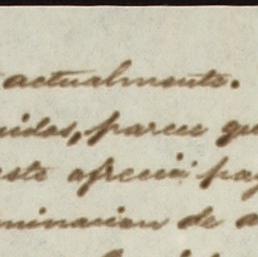 actualmente.
uidas, parece qu
este ofrecia pag
minacion de a